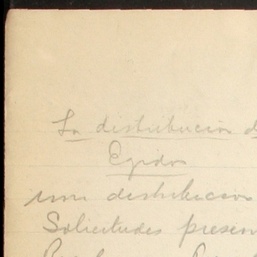 La distribucion d
Egidos
una distribucion
Solicitudes presen